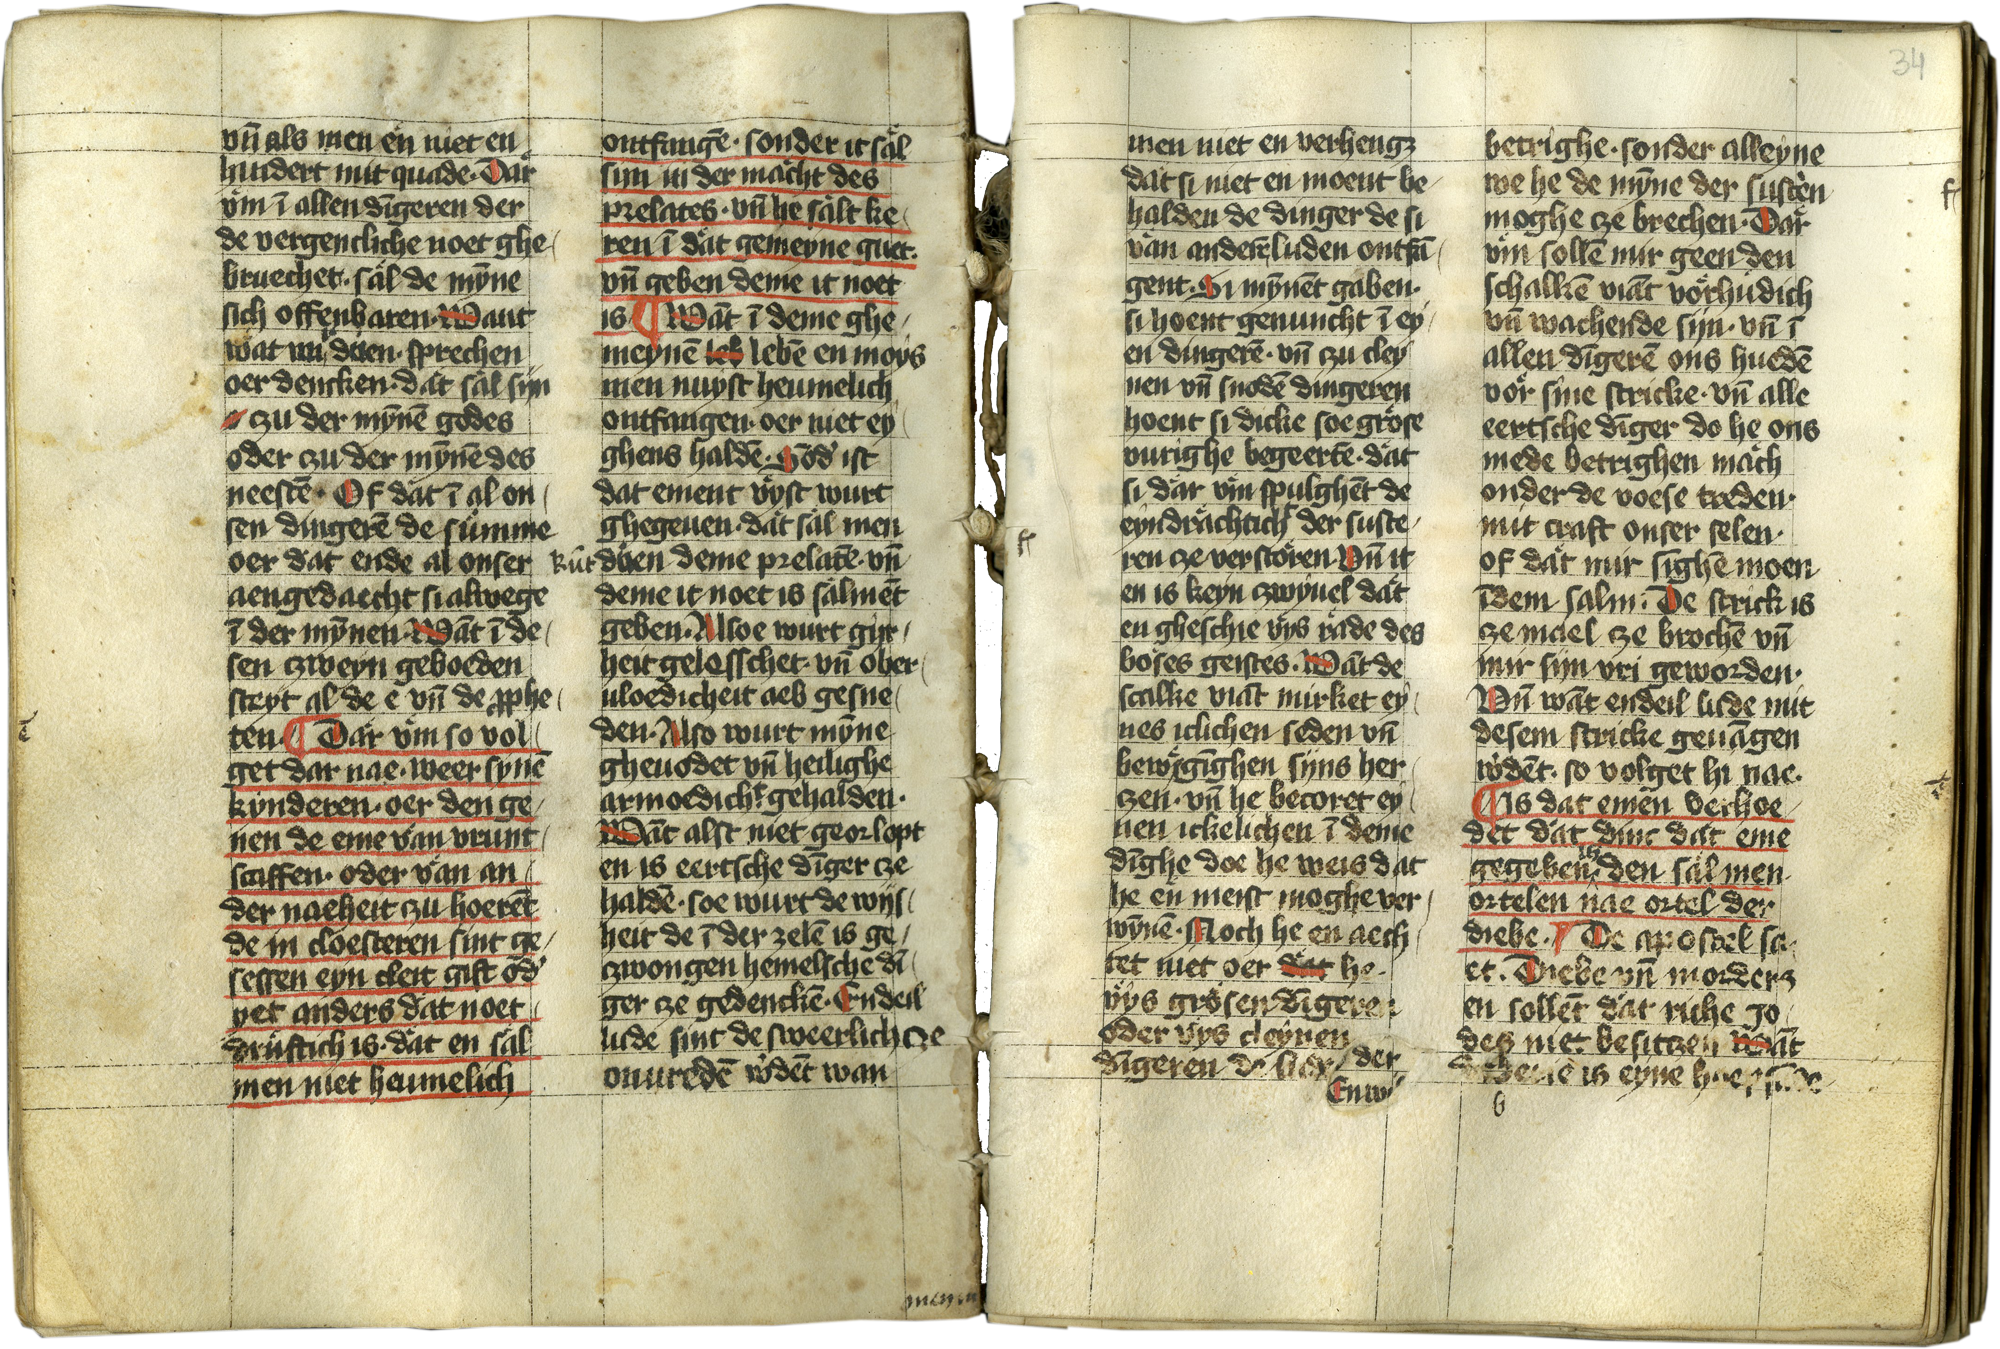 vn̄ als men en niet en
hindert mit quade· Dar
vm ī allen dīgeren der
de vergencliche noet ghe/
bruechet· sal de mȳne
sich offenbaren· Want
wat wi duen· sprechen
oer dencken· dat sal sijn
zu der mȳnē godes
oder czu der mȳnē des
neestē· Of dat ī al on/
sen dingerē de summe
oer dat ende al onser
aengedaecht si alwege
ī der mȳnen· Wāt ī de/
sen czweyn geboeden
stryt al de e vn̄ de ꝓphe/
ten· ¶ Dar vm so vol/
get dar nae· weer synē
kynderen· oer den ge/
nen de eme van vrunt/
scaffen· oder van an/
der naeheit zu hoerēt
de in cloesteren sint ge/
sessen eyn cleit gift od'
yet anders dat noet/
druftich is· dat en sal
men niet heumelich
ontfangē· sonder it sal
sijn in der macht des
prelates· vn̄ he salt ke/
ren ī dat gemeyne guet·
vn̄ geben deme it noet
is ¶ Wāt ī deme ghe/
meynē leb lebē en moys
men nuyst heumelich
ontfangen· oer niet ey/
ghens haldē· Sōd' ist
dat ement vyst wurt
ghegeuen· dat sal men
kūt duen deme prelatē· vn̄
deme it noet is salmēt
geben· Alsoe wurt gijr/
heit gelesschet· vn̄ ober/
uloedicheit aeb gesne/
den· Also wurt mȳne
gheuodet vn̄ heilighe
armoedich't gehalden·
Wāt alst niet georlopt
en is eertsche dīger cze
haldē· soe wurt de wijs/
heit de ī der zelē is ge/
zwongen hemelsche dī/
ger ze gedenckē· Endeil
lude sint de sweerlich cze
onuredē w'dēt wan
meyn
men niet en verhengz
dat si niet en moent be/
halden de dinger de si
van anderē luden ontfā/
gent· Si mȳnēt gaben·
si hoent genuncht ī ey/
en dingerē· vn̄ czu cley/
nen vn̄ snodē dingeren
hoent si dicke soe grose
vurighe begeertē· dat
si dar vm spulghēt de
eyndrachtich't der suste/
ren ze verstoren· Vn̄ it
en is keyn czwyuel dat
en gheschie vys rade des
boses geistes· Wāt de
scalke viāt mirket ey/
nes iclichen seden vn̄
bewgīghen sijns her/
czen· vn̄ he becoret ey/
nen ickelichen ī deme
dīghe doe he weis dat
he en meist moghe ver/
wȳnē· Noch he en aech/
tet niet oer dat he·
vys grosen dīgeren
oder vys cleynen
dīgeren de lude der
En wi
34
betrighe· sonder alleyne
we he de mȳne der sustēn
moghe cze brechen· Dar
vm sollē mir geen den
schalkē viāt vorhudich
vn̄ wachende sijn· vn̄ ī
allen dīgerē ons huedē
vor sine stricke· vn̄ alle
eertsche dīger do he ons
mede betrighen mach
onder de voese treden·
mit craft onser selen·
of dat mir sighē moen
īdem salm· De strick is
ze mael ze brochē vn̄
mir sijn vri geworden·
Vn̄ wāt endeil lude mit
desem stricke geuāgen
w'dēt· so volget hi nae·
¶ Is dat emen verhoe/
det dat dinc dat eme
gegeben is den sal men
ortelen nae ortel der
diebe· ¶ De apostel sa/
et· Diebe vn̄ morders
en sollēt dat riche go/
des niet besitzen Wāt